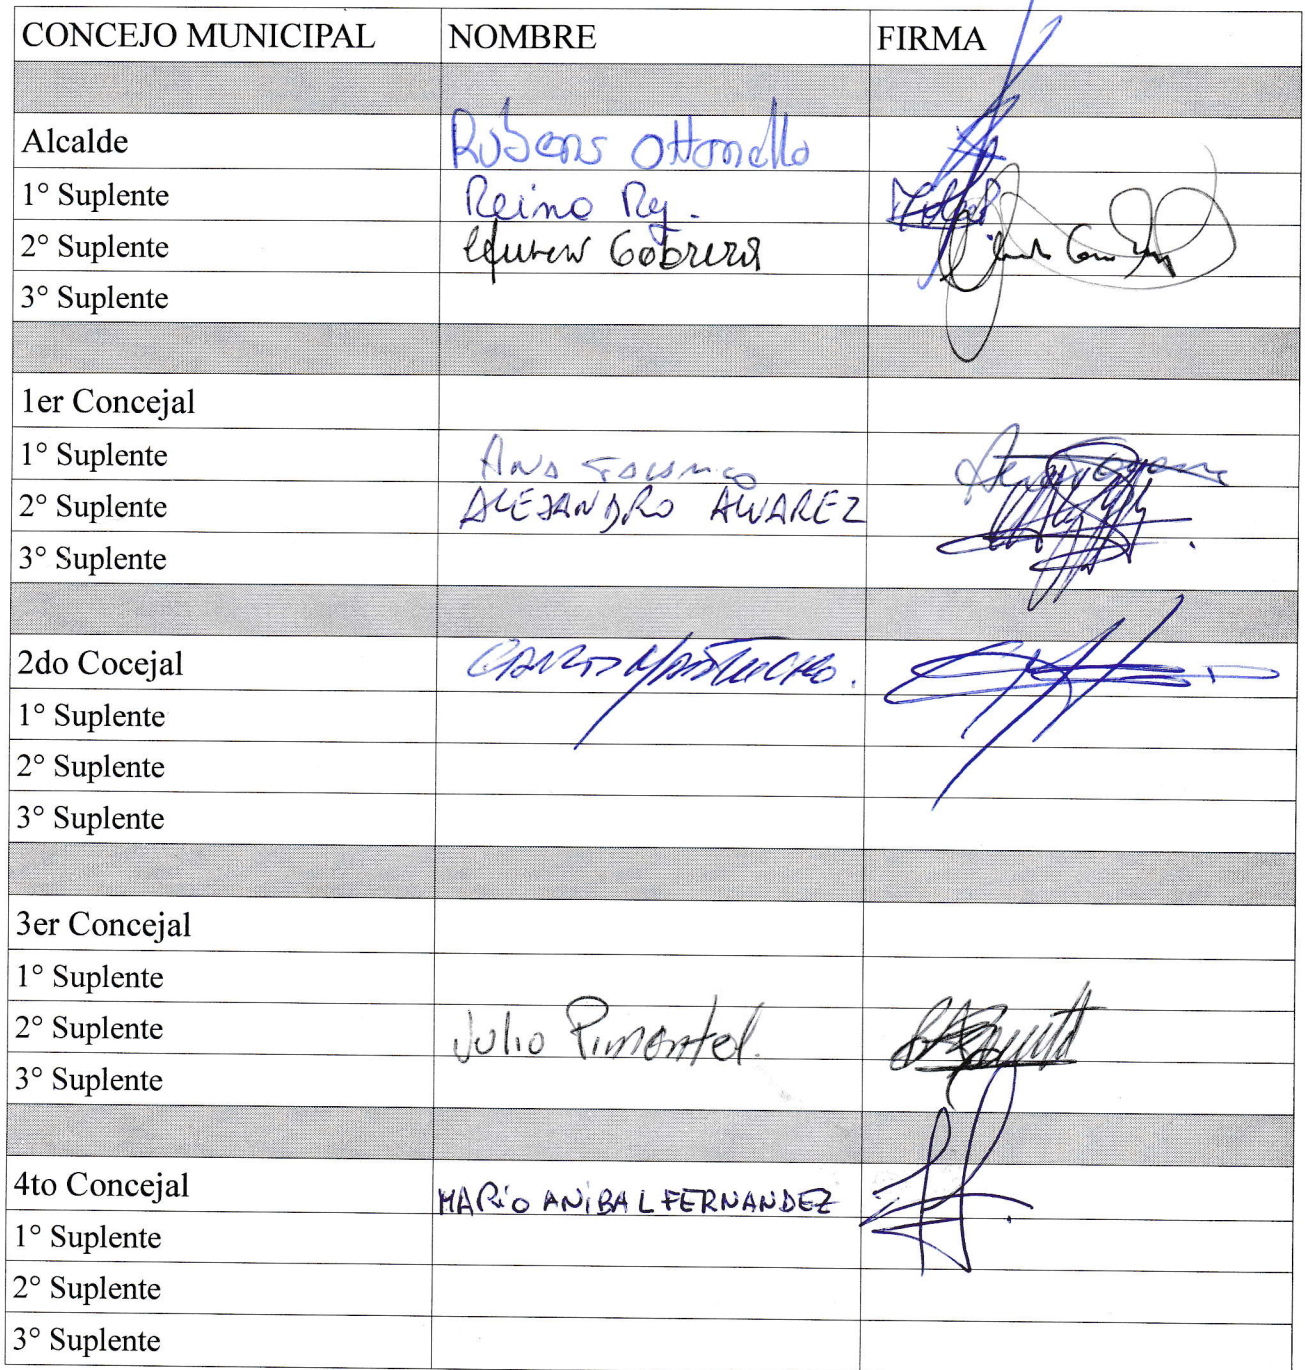 CONCEJO MUNICIPAL NOMBRE FIRMA
Alcalde Rubens Ottonello
1° Suplente Reino Rey.
2° Suplente Cabrera
3° Suplente
1er Concejal
1° Suplente Ana
2° Suplente ALEJANDRO ALVAREZ
3° Suplente
2do Cocejal CARLOS
1° Suplente
2° Suplente
3° Suplente
3er Concejal
1° Suplente
2° Suplente Julio Pimentel.
3° Suplente
4to Concejal MARiO ANiBAL FERNANDEZ
1° Suplente
2° Suplente
3° Suplente